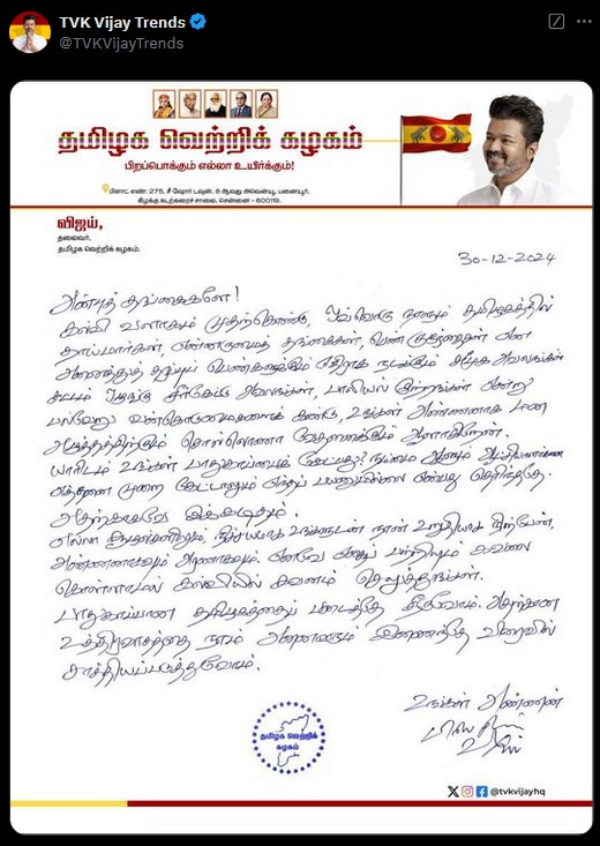 TVK Vijay Trends
@TVKVijayTrends
தமிழக வெற்றிக் கழகம்
பிறப்பொக்கும் எல்லா உயிர்க்கும்!
பிளாட் எண்: 275, சீ ஷோர் டவுன், 8 ஆவது அவென்யூ, பனையூர்,
கிழக்கு கடற்கரைச் சாலை, சென்னை - 600119.
விஜய்,
தலைவர்,
தமிழக வெற்றிக் கழகம்.
30-12-2024
அன்புத் தங்கைகளே!
கல்வி வளாகம் முதற்கொண்டு, ஒவ்வொரு நாளும் தமிழகத்தில்
தாய்மார்கள், என்னருமைத் தங்கைகள், பெண் குழந்தைகள் என
அனைத்துத் தரப்புப் பெண்களுக்கும் எதிராக நடக்கும் சமூக அவலங்கள்
சட்டம் ஒழுங்கு சீர்கேட்டு அவலங்கள், பாலியல் குற்றங்கள் என்று
பல்வேறு வன்கொடுமைகளைக் கண்டு, உங்கள் அண்ணனாக மன
அழுத்தத்திற்கும் சொல்லொணா வேதனைக்கும் ஆளாகிறேன்.
யாரிடம் உங்கள் பாதுகாப்பைக் கேட்பது? நம்மை ஆளும் ஆட்சியாளர்களை
எத்தனை முறை கேட்டாலும் எந்தப் பயனுமில்லை என்பது தெரிந்ததே.
அதற்காகவே இக்கடிதம்.
எல்லா சூழல்களிலும், நிச்சயமாக உங்களுடன் நான் உறுதியாக நிற்பேன்,
அண்ணனாகவும் அரணாகவும். எனவே எதைப் பற்றியும் கவலை
கொள்ளாமல் கல்வியில் கவனம் செலுத்துங்கள்.
பாதுகாப்பான தமிழகத்தைப் படைத்தே தீருவோம். அதற்கான
உத்திரவாதத்தை நாம் அனைவரும் இணைந்தே விரைவில்
சாத்தியப்படுத்துவோம்.
உங்கள் அண்ணன்
விஜய்
தமிழக வெற்றிக்
கழகம்
@tvkvijayhq